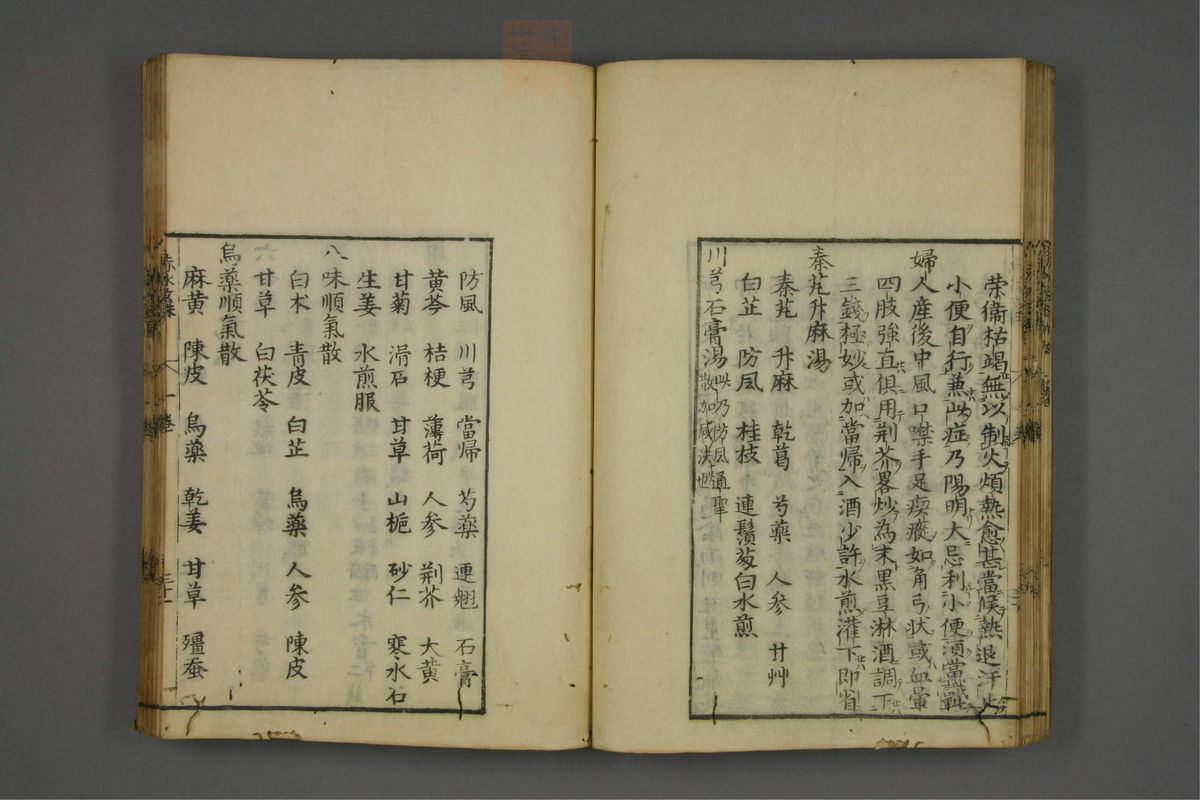 荣衛枯竭無以制火煩熱愈甚當候熱退汗止
小便自行兼此症乃陽明大忌利小便須當
婦人産後中風口噤手足瘈瘲如角弓状或血暈
四肢強直俱用荆芥畧炒為末黑豆淋酒調下
三錢極妙或加當歸入酒少許水煎灌下即省
秦艽升麻湯
秦艽 升麻 乾葛 芍藥 人参 甘艸
白芷 防风 桂枝 連鬚葱白水煎
川芎石膏湯此乃防风通聖
散加减法也
防風 川芎 當歸 芍藥 連翹 石膏
黄芩 桔梗 薄荷 人参 荆芥 大黄
甘菊 滑石 甘草 山梔 砂仁 寒水石
生姜 水煎服
八味順氣散
白术 青皮 白芷 烏藥 人参 陳皮
甘草 白茯苓
烏藥順氣散
麻黄 陳皮 烏藥 乾姜 甘草 殭蚕
赤水玄珠 一卷 三十一